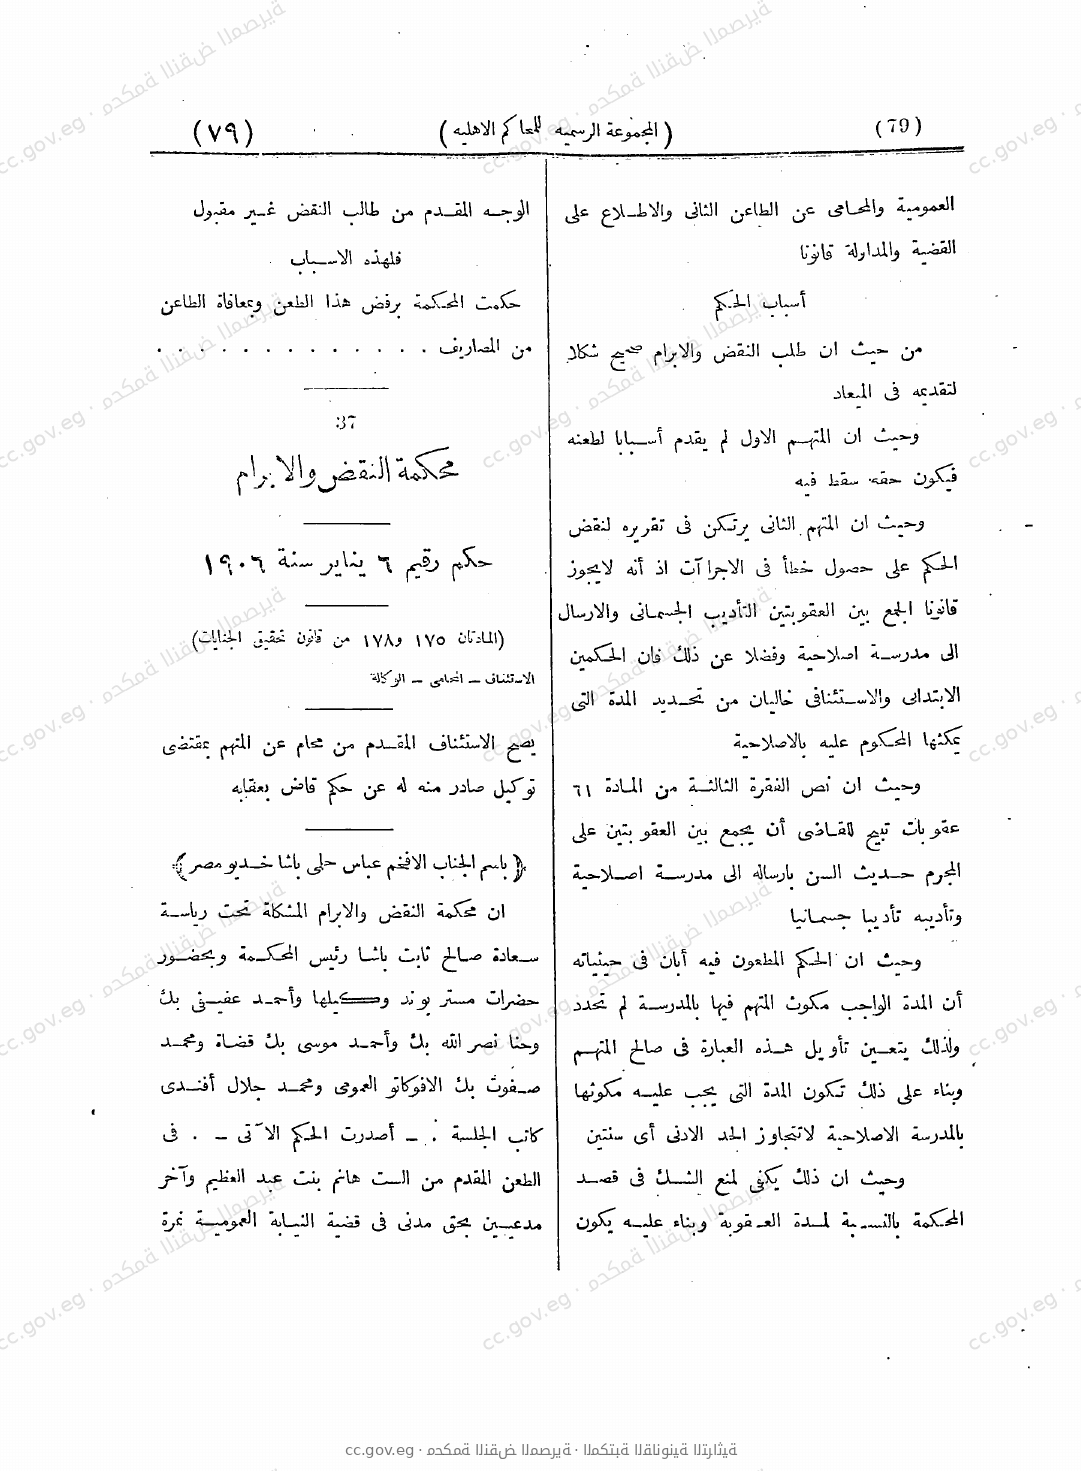 (79) (المجموعة الرسمية للمحاكم الاهلية) (٧٩)
العمومية والمحامى عن الطاعن الثانى والاطلاع على
القضية والمداولة قانونا
أسباب الحكم
من حيث ان طلب النقض والابرام صحيح شكلا
لتقديمه فى الميعاد
وحيث ان المتهم الاول لم يقدم أسبابا لطعنه
فيكون حقه سقط فيه
وحيث ان المتهم الثانى يرتكن فى تقريره لنقض
الحكم على حصول خطأ فى الاجرآت اذ أنه لايجوز
قانونا الجمع بين العقوبتين التأديب الجسمانى والارسال
الى مدرسة اصلاحية وفضلا عن ذلك فان الحكمين
الابتدائى والاستئنافى خاليان من تحديد المدة التى
يمكثها المحكوم عليه بالاصلاحية
وحيث ان نص الفقرة الثالثة من المادة ٦١
عقوبات تبيح للقاضى أن يجمع بين العقوبتين على
المجرم حديث السن بارساله الى مدرسة اصلاحية
وتأديبه تأديبا جسمانيا
وحيث ان الحكم المطعون فيه أبان فى حيثياته
أن المدة الواجب مكوث المتهم فيها بالمدرسة لم تحدد
ولذلك يتعين تأويل هذه العبارة فى صالح المتهم
وبناء على ذلك تكون المدة التى يجب عليه مكوثها
بالمدرسة الاصلاحية لاتتجاوز الحد الادنى أى سنتين
وحيث ان ذلك يكفى لمنع الشك فى قصد
المحكمة بالنسبة لمدة العقوبة وبناء عليه يكون
الوجه المقدم من طالب النقض غير مقبول
فلهذه الاسباب
حكمت المحكمة برفض هذا الطعن وبمعافاة الطاعن
من المصاريف . . . . . . . . . . . .
37
محكمة النقض والابرام
حكم رقيم ٦ يناير سنة ١٩٠٦
(المادتان ١٧٥ و١٧٨ من قانون تحقيق الجنايات)
الاستئناف – المحامى – الوكالة
يصح الاستئناف المقدم من محام عن المتهم بمقتضى
توكيل صادر منه له عن حكم قاض بعقابه
﴿ باسم الجناب الافخم عباس حلمى باشا خديو مصر ﴾
ان محكمة النقض والابرام المشكلة تحت رياسة
سعادة صالح ثابت باشا رئيس المحكمة وبحضور
حضرات مستر بوند وكيلها وأحمد عفيفى بك
وحنا نصر الله بك وأحمد موسى بك قضاة ومحمد
صفوت بك الافوكاتو العمومى ومحمد جلال أفندى
كاتب الجلسة . – أصدرت الحكم الآتى – . فى
الطعن المقدم من الست هانم بنت عبد العظيم وآخر
مدعيين بحق مدنى فى قضية النيابة العمومية نمرة
cc.gov.eg · محكمة النقض المصرية · المكتبة القانونية التراثية